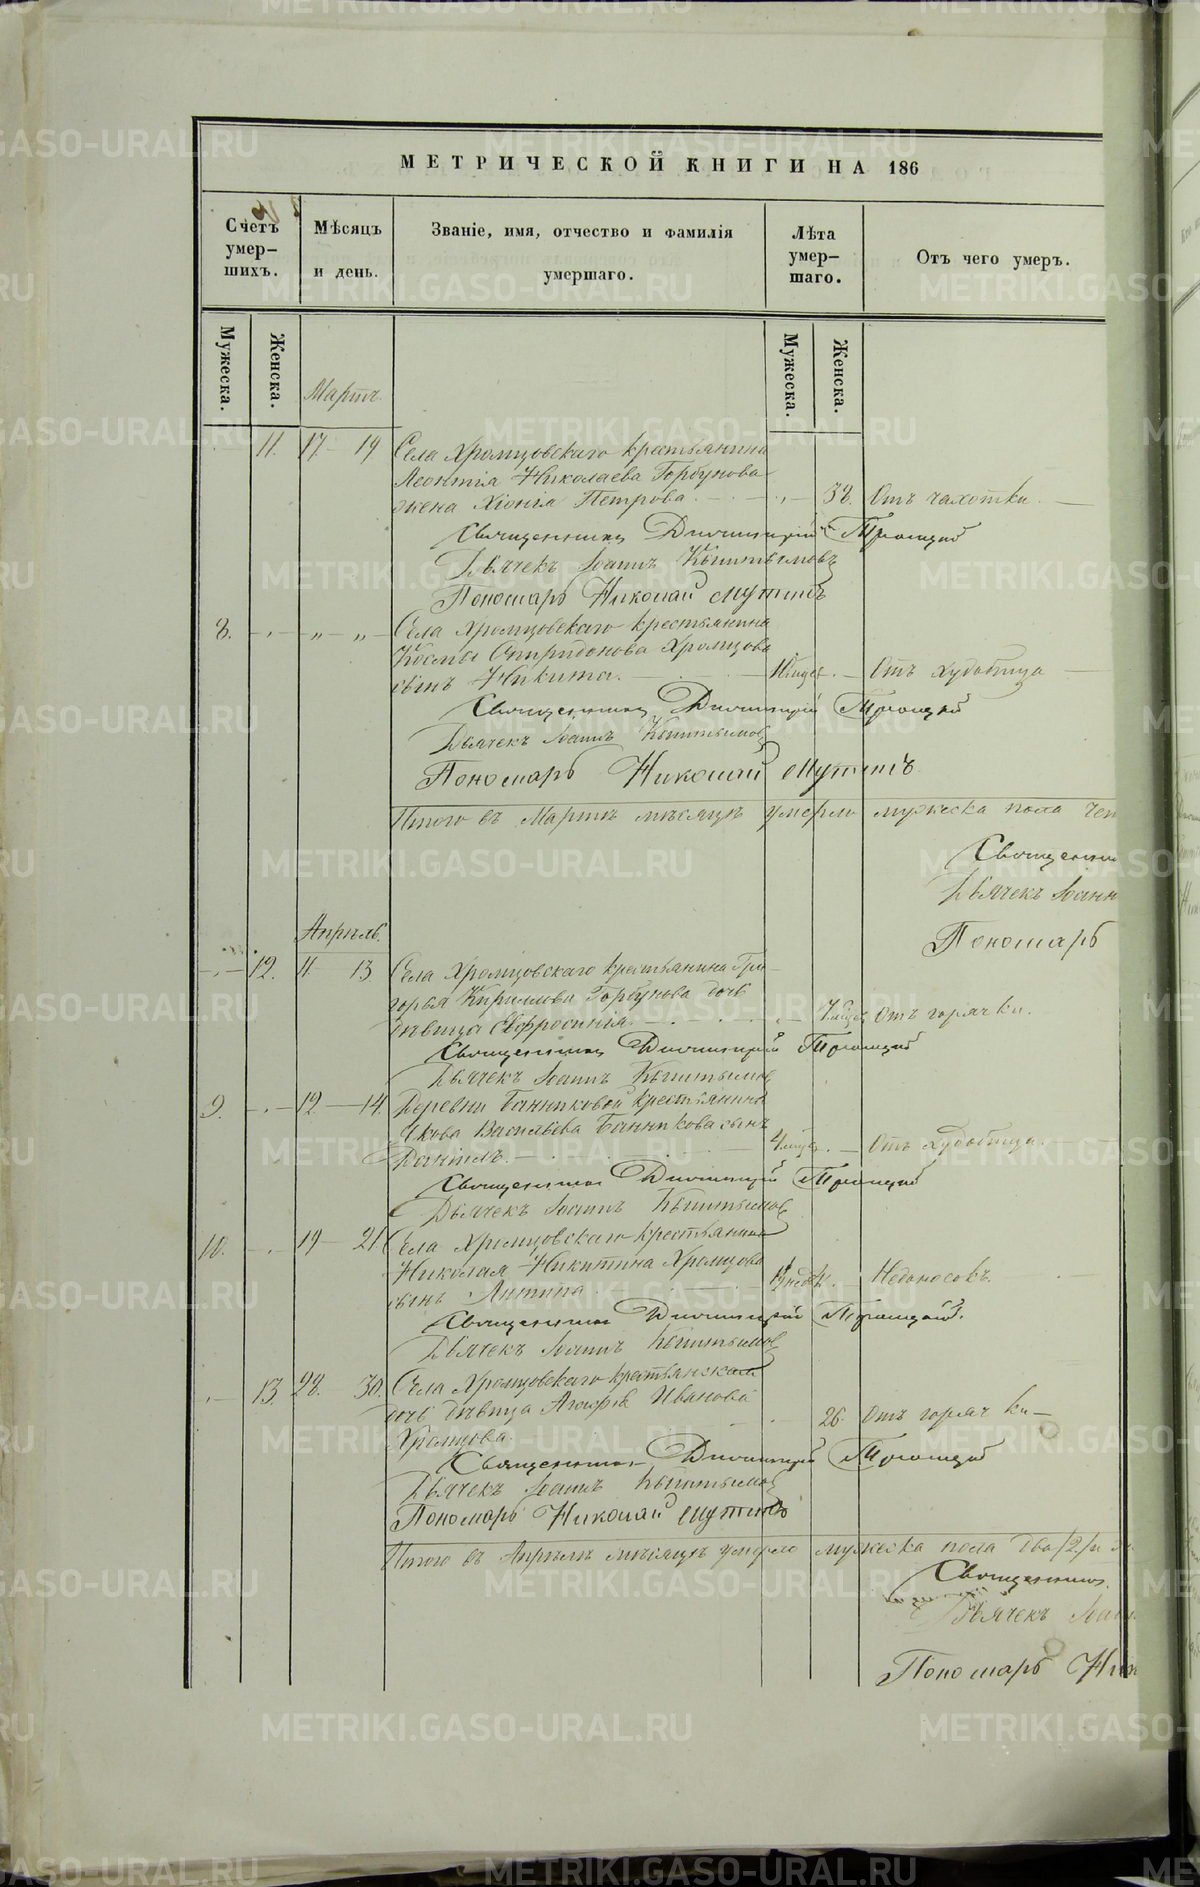 МЕТРИЧЕСКОЙ КНИГИ НА 186
Счетъ умер-шихъ.
Мѣсяцъ и день.
Званіе, имя, отчество и фамилія умершаго.
Лѣта умер-шаго.
Отъ чего умеръ.
Мужеска.
Женска.
Мужеска.
Женска.
Мартъ.
11. 17 19 Села Хромцовскаго крестьянина
Леонтія Николаева Горбунова
жена Хіонія Петрова. 38. Отъ чахотки.
Священникъ Димитрій Троицкій
Дьячекъ Іоаннъ Кыштымовъ
Пономарь Николай Мутинъ
8. „ „ Села Хромцовскаго крестьянина
Космы Спиридонова Хромцова
сынъ Никита. Отъ худобища
Священникъ Димитрій Троицкій
Дьячекъ Іоаннъ Кыштымовъ
Пономарь Николай Мутинъ
Итого въ Мартѣ мѣсяцѣ умерло мужеска пола чет
Священни
Дьячекъ Іоанн
Пономарь
Апрѣль.
12. 11. 13. Села Хромцовскаго крестьянина Гри-
горья Кирилова Горбунова дочь
дѣвица Евфросинія. 7 мѣсяц. Отъ горячки.
Священникъ Димитрій Троицкій
Дьячекъ Іоаннъ Кыштымовъ
9. 12 14. Деревни Банниковой крестьянина
Якова Васильева Банникова сынъ
Даніилъ. 4 мѣсяц. Отъ худобища.
Священникъ Димитрій Троицкій
Дьячекъ Іоаннъ Кыштымовъ
10. 19 21 Села Хромцовскаго крестьянина
Николая Никитина Хромцова
сынъ Недоносокъ.
Священникъ Димитрій Троицкій.
Дьячекъ Іоаннъ Кыштымовъ
13. 28. 30. Села Хромцовскаго крестьянская
дочь дѣвица Иванова
Хромцова. 26. Отъ горячки
Священникъ Димитрій Троицкій
Дьячекъ Іоаннъ Кыштымовъ
Пономарь Николай Мутинъ
Итого въ Апрѣлѣ мѣсяцѣ умерло мужеска пола два /2/ и
Священникъ
Дьячекъ Іоан
Пономарь Ник
METRIKI.GASO-URAL.RU